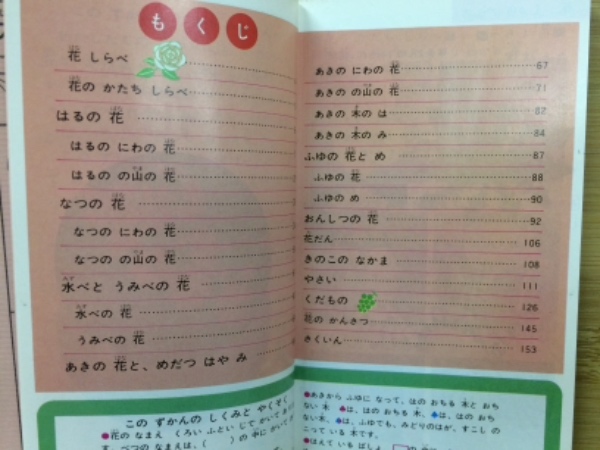 もくじ
花 しらべ
花の かたち しらべ
はるの 花
はるの にわの 花
はるの の山の 花
なつの 花
なつの にわの 花
なつの の山の 花
水べと うみべの 花
水べの 花
うみべの 花
あきの 花と、めだつ はや み
あきの にわの 花 67
あきの の山の 花 71
あきの 木の は 82
あきの 木の み 84
ふゆの 花と め 87
ふゆの 花 88
ふゆの め 90
おんしつの 花 92
花だん 106
きのこの なかま 108
やさい 111
くだもの 126
花の かんさつ 145
さくいん 153
この ずかんの しくみと やくそく
●花の なまえ くろい ふとい じで かいて
す。べつの なまえは、( )の 中に かいて
●あきから ふゆに なって、はの おちる 木と おち
ない 木 ♠は、はの おちる 木、♠は、はの おち
ない木、♠は、ふゆでも、みどりのはが、すこし の
こって いる 木です。
●はえて いる ばしょ